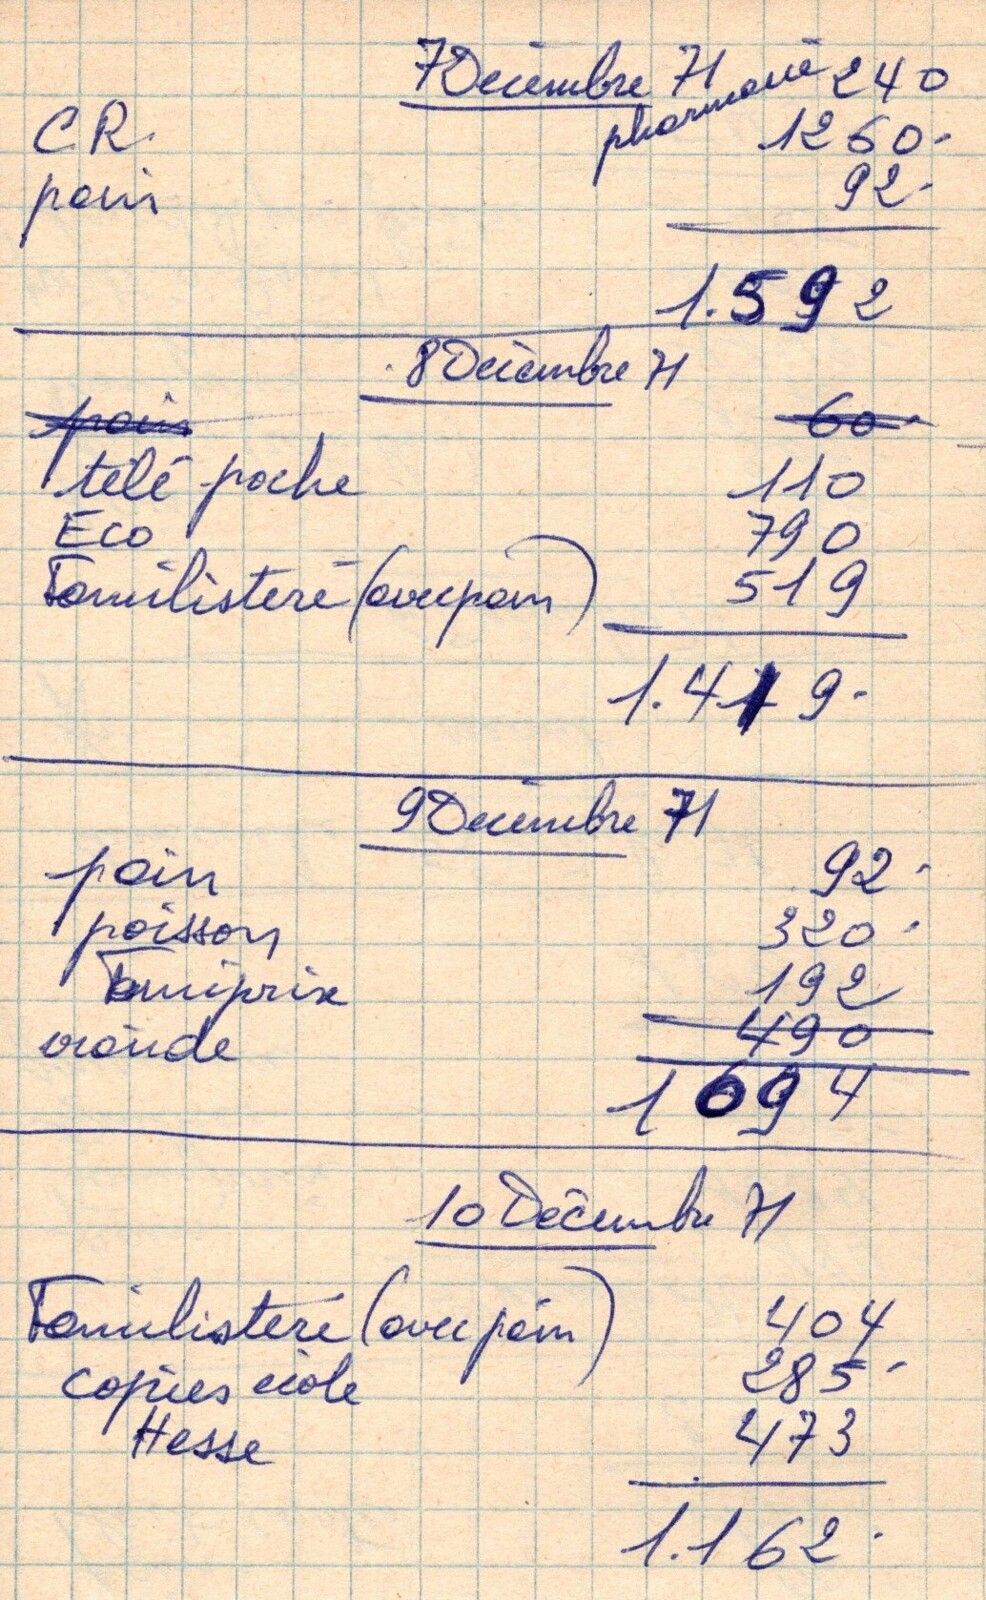 7 Décembre 71
pharmacie 240
C.R. 1260.
pain 92.
1.592
8 Décembre 71
pain 60.
télé poche 110
Eco 790
Familistère (avec pain) 519
1.419.
9 Décembre 71
pain 92.
poisson 320.
Famiprix 192
viande 490
1094
10 Décembre 71
Familistère (avec pain) 404
copies école 285.
Hesse 473
1.162.